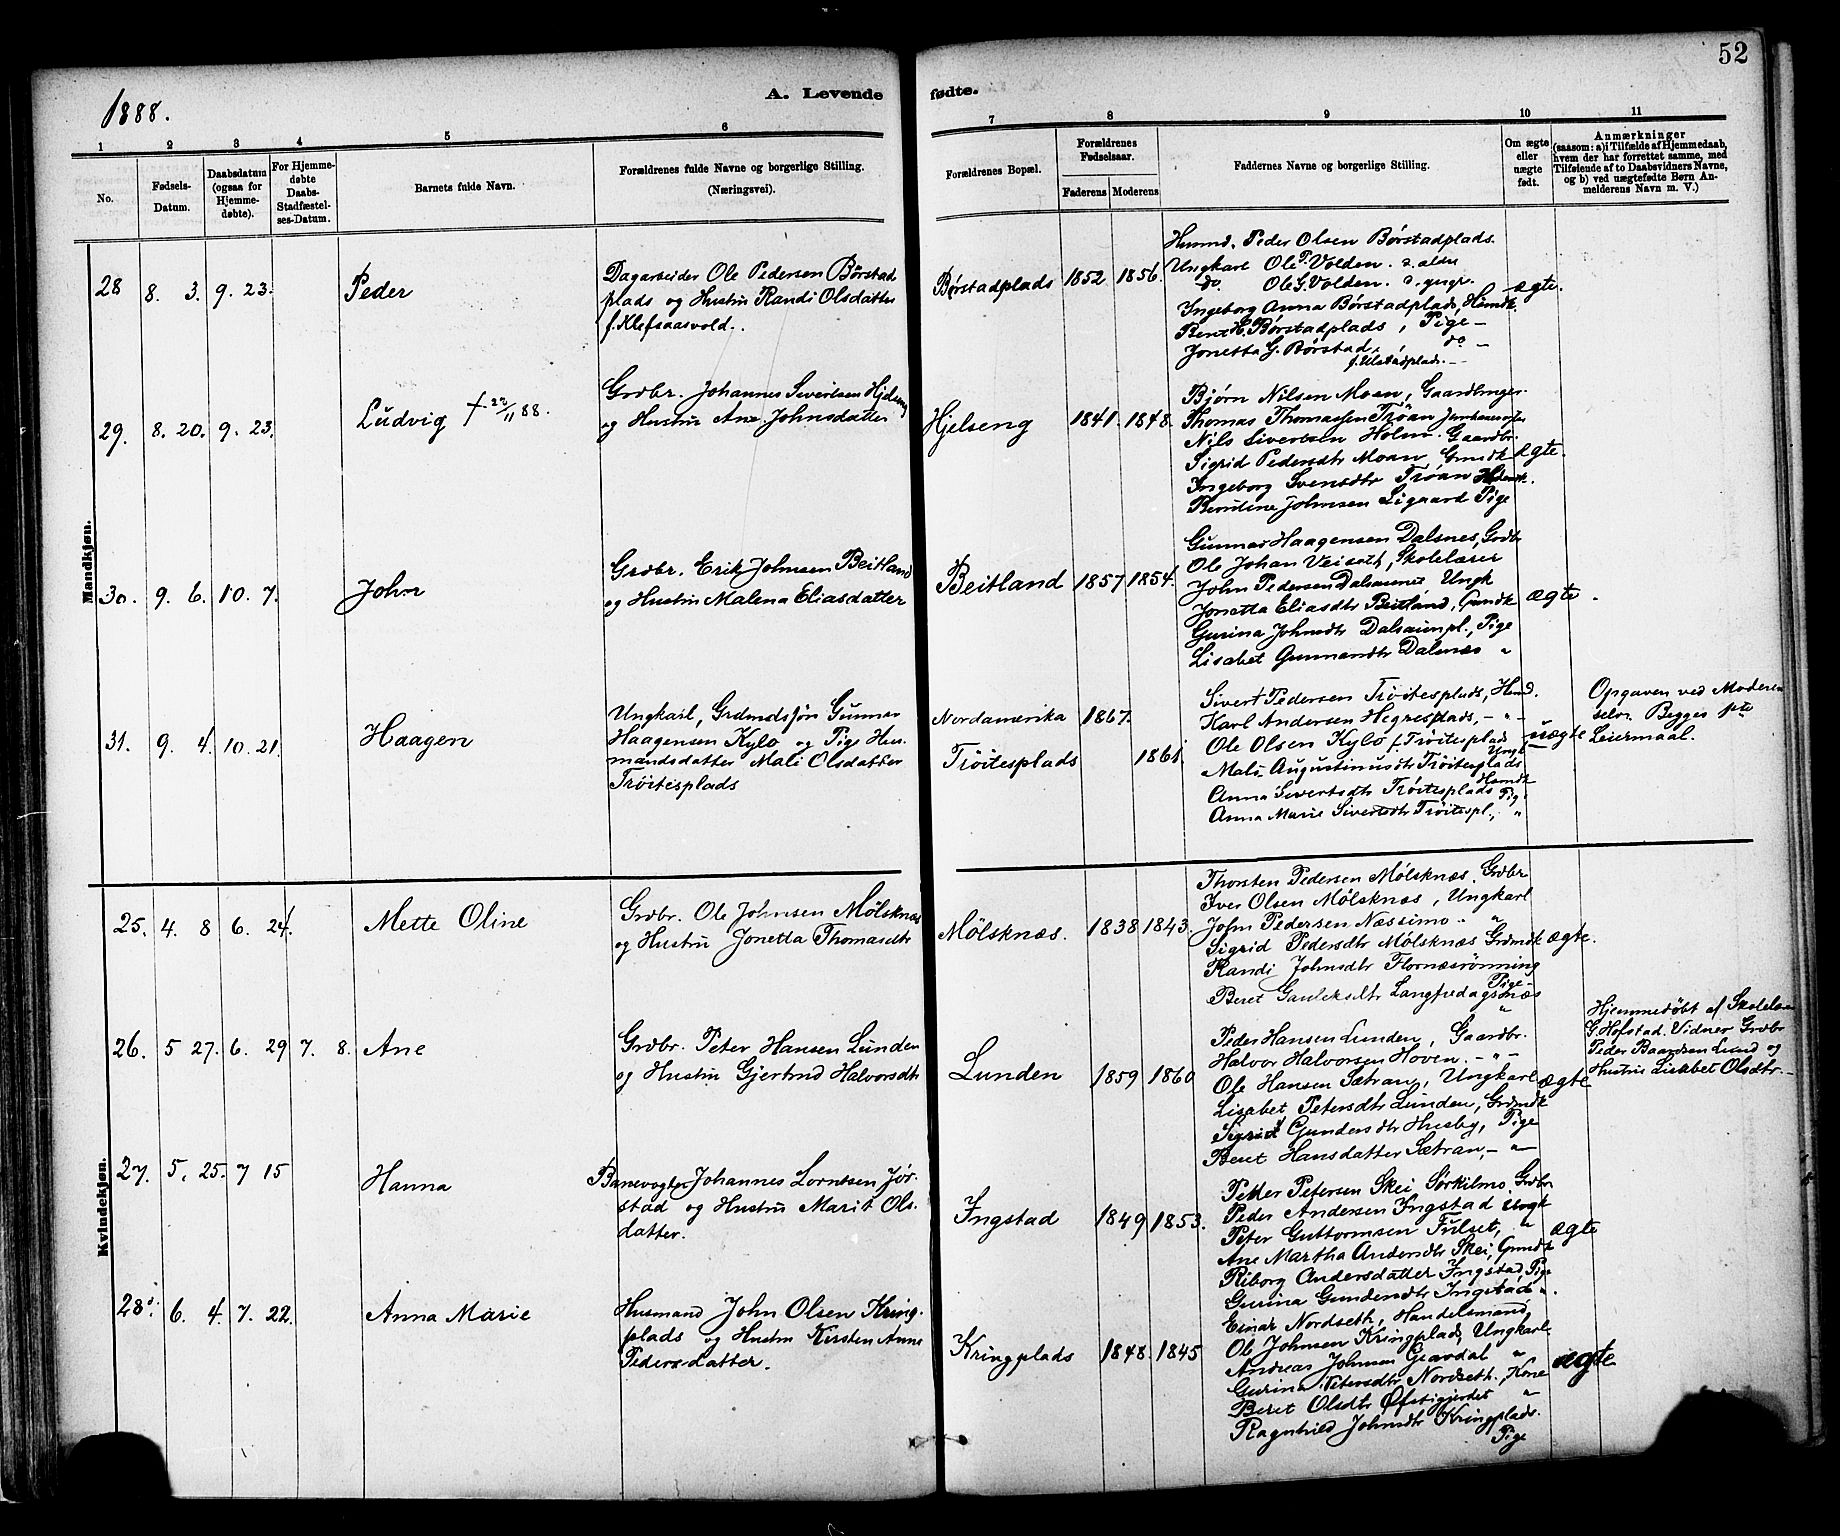 52
1888.
A. Levende fødte.
1 2 3 4 5 6 7 8 9 10 11
No.
Fødsels-Datum.
Daabsdatum (ogsaa for Hjemmedøbte).
For Hjemmedøbte Daabs-Stadfæstelses-Datum.
Barnets fulde Navn.
Forældrenes fulde Navne og borgerlige Stilling. (Næringsvei).
Forældrenes Bopæl.
Forældrenes Fødselsaar.
Faderens Moderens
Faddernes Navne og borgerlige Stilling.
Om ægte eller uægte født.
Anmærkninger
(saasom: a) i Tilfælde af Hjemmedaab, hvem der har forrettet samme, med Tilføiende af to Daabsvidners Navne, og b) ved uægtefødte Børn Anmelderens Navn m. V.)
Mandkjøn.
28 8. 3. 9. 23. Peder
Dagarbeider Ole Pedersen Børstad
plads og Hustru Randi Olsdatter
f. Klefsaasvold.
Børstadplads 1852 1856.
Husmd. Peder Olsen Børstadplads.
Ungkarl Ole P. Volden. d. ældre
do Ole S. Volden. d. yngr.
Ingeborg Anna Børstadplads, Hsmdk.
Berit H. Børstadplads, Pige
Jonetta G. Børstad, do
f. Ulstadplads.
ægte.
29. 8. 20. 9. 23. Ludvig † 22/11 88.
Grdbr. Johannes Sivertsen Hjelseng
og Hustru Ane Johnsdatter
Hjelseng 1841. 1848.
Bjørn Nilsen Moan, Gaardbruger
Thomas Thomassen Trøan
Nils Sivertsen Holm. Gaardbr.
Sigrid Pedersdtr Moan, Grmdk
Ingeborg Svensdtr Trøan
Berntine Johnsen Ligaard Pige
ægte.
30. 9. 6. 10. 7. John
Grdbr. Erik Johnsen Beitland
og Hustru Malena Eliasdatter
Beitland 1857 1854.
Gunnar Haagensen Dalsnes, Grdbr
Ole Johan Veiseth, Skolelærer
John Pedersen Dalsaunet Ungk
Jonetta Eliasdtr Beitland, Grmdk
Gurina Johnsdtr Dalsaunpl., Pige
Lisabet Gunnarsdtr Dalsnes "
ægte.
31. 9. 4. 10. 21. Haagen
Ungkarl, Grdmdssøn Gunnar
Haagensen Kylo og Pige Hus-
mandsdatter Mali Olsdatter
Trøitesplads
Nordamerika 1867.
Trøitesplads 1861.
Sivert Pedersen Trøitesplads, Hsmd.
Karl Andersen Hegresplads, - " -
Ole Olsen Kylo f. Trøitesplad Ungk
Mali Augustinusdtr Trøitesplads Hsmdk
Anna Sivertsdtr Trøitesplads Pig
Anna Marie Sivertsdtr Trøitespl., "
uægte
Opgaven ved Moderen
selv. Begges 1ste
Leiermaal.
Kvindekjøn.
25. 4. 8 6. 24. Mette Oline
Grdbr. Ole Johnsen Mølsknæs
og Hustru Jonetta Thomasdtr
Mølsknæs. 1838 1843.
Thorsten Pedersen Mølsknæs. Grdbr
Iver Olsen Mølsknæs, Ungkarl
John Pedersen Næssimo. "
Sigrid Pedersdtr Mølsknæs Grdmdk
Randi Johnsdtr Flornæsrønning Pige
Beret Gauleksdtr Langfredagsnæs "
ægte.
26. 5 27. 6. 29 7. 8. Ane
Grdbr. Peter Hansen Lunden
og Hustru Gjertrud Halvorsdtr
Lunden 1859 1860
Peder Hansen Lunden, Gaardbr.
Halvor Halvorsen Hoven. - " -
Ole Hansen Sætran, Ungkarl
Lisabet Petersdtr Lunden, Grdmdk
Sigrid Gundersdtr Husby, Pige
Beret Hansdatter Sætran, - " -
ægte
Hjemmedøbt af Skolelær
G. Hofstad. Vidner Grdbr
Peder Baardsen Lund og
Hustru Lisabet Olsdtr.
27. 5. 25. 7 15 Hanna
Banevogter Johannes Lorntsen Jør-
stad og Hustru Marit Ols-
datter.
Ingstad 1849 1853.
Petter Petersen Skei Sørkilmo, Grdbr.
Peder Andersen Ingstad Ungk
Peter Guttormsen Fulset, "
Ane Martha Andersdtr Skei, Grmdk
Riborg Andersdatter Ingstad, Pige
Gurina Gundersdtr Ingstad "
ægte
28. 6. 4. 7. 22. Anna Marie
Husmand John Olsen Kring-
plads og Hustru Kirsten Anne
Pedersdatter.
Kringplads 1848. 1845
Einar Nordseth, Handelsmand
Ole Johnsen Kringplads, Ungkarl
Andreas Johnsen Gravdal "
Gurina Petersdtr Nordseth, Kone
Beret Olsdtr Øfstigjerdet "
Ragnhild Johnsdtr Kringplads.
Pige
ægte